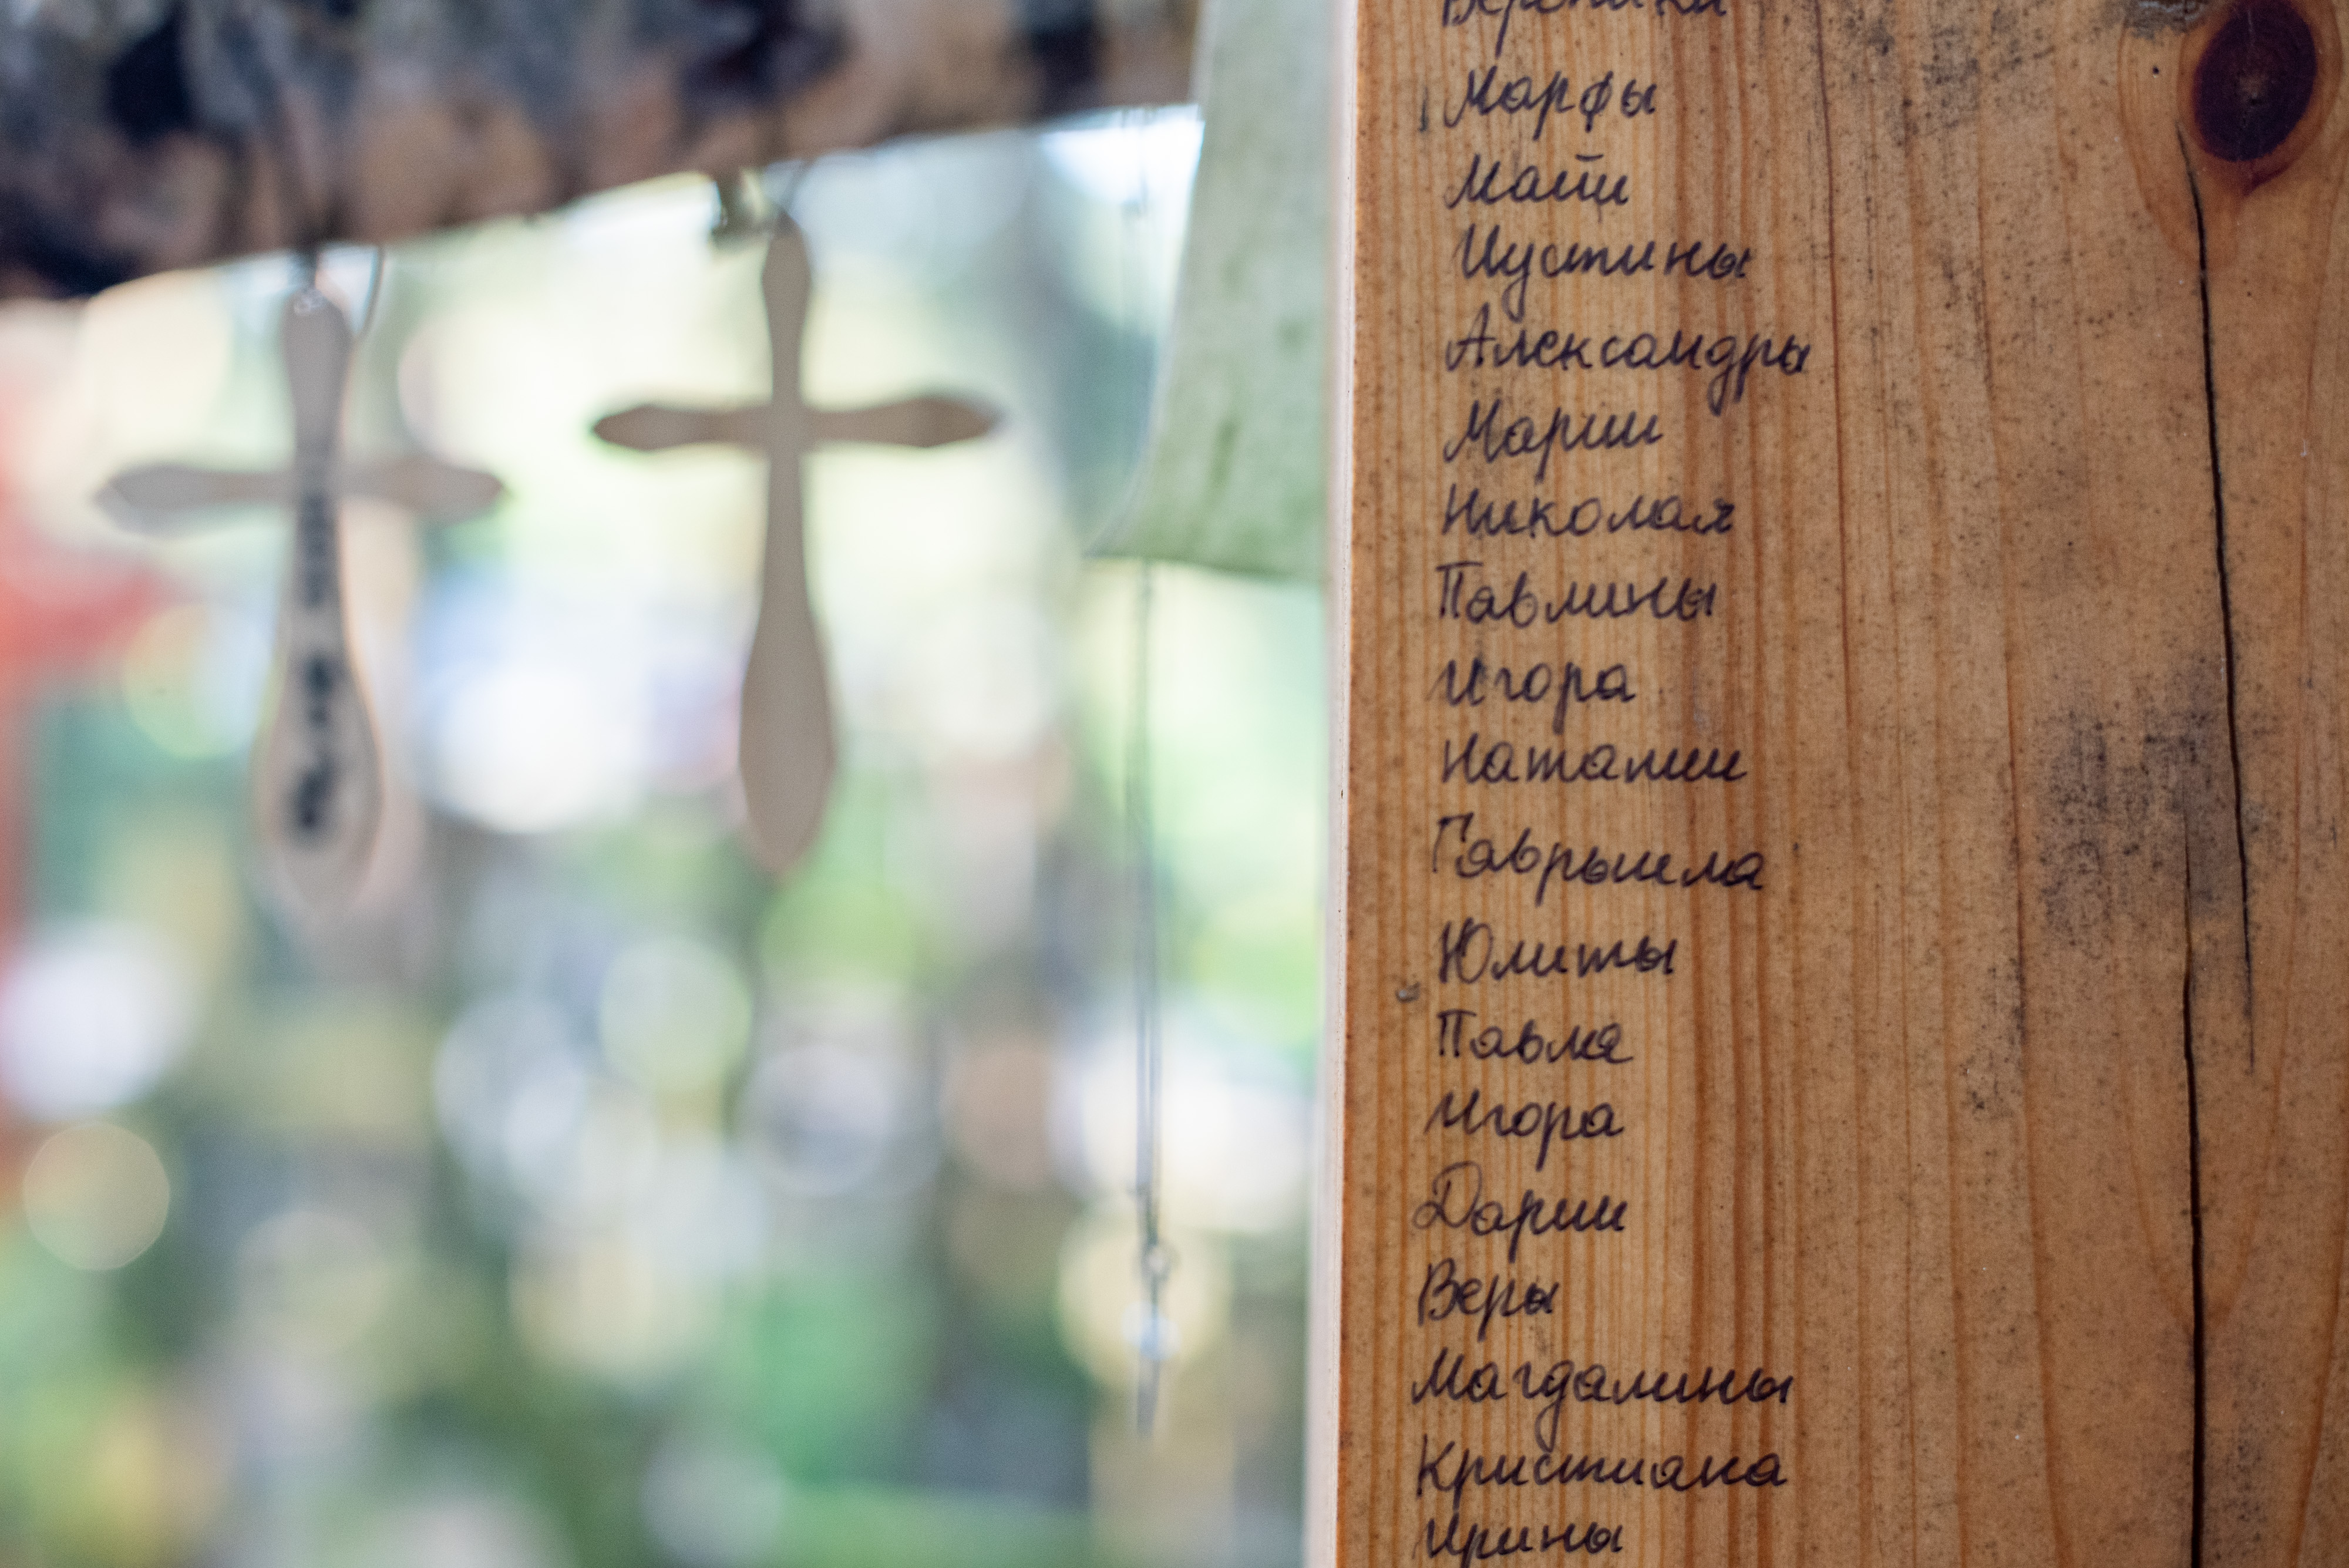 Вероники
Марфы
Майи
Иустины
Александры
Марии
Николая
Павлины
Игоря
Наталии
Гаврыила
Юлиты
Павла
Игоря
Дарии
Веры
Магдалины
Кристиана
Ирины